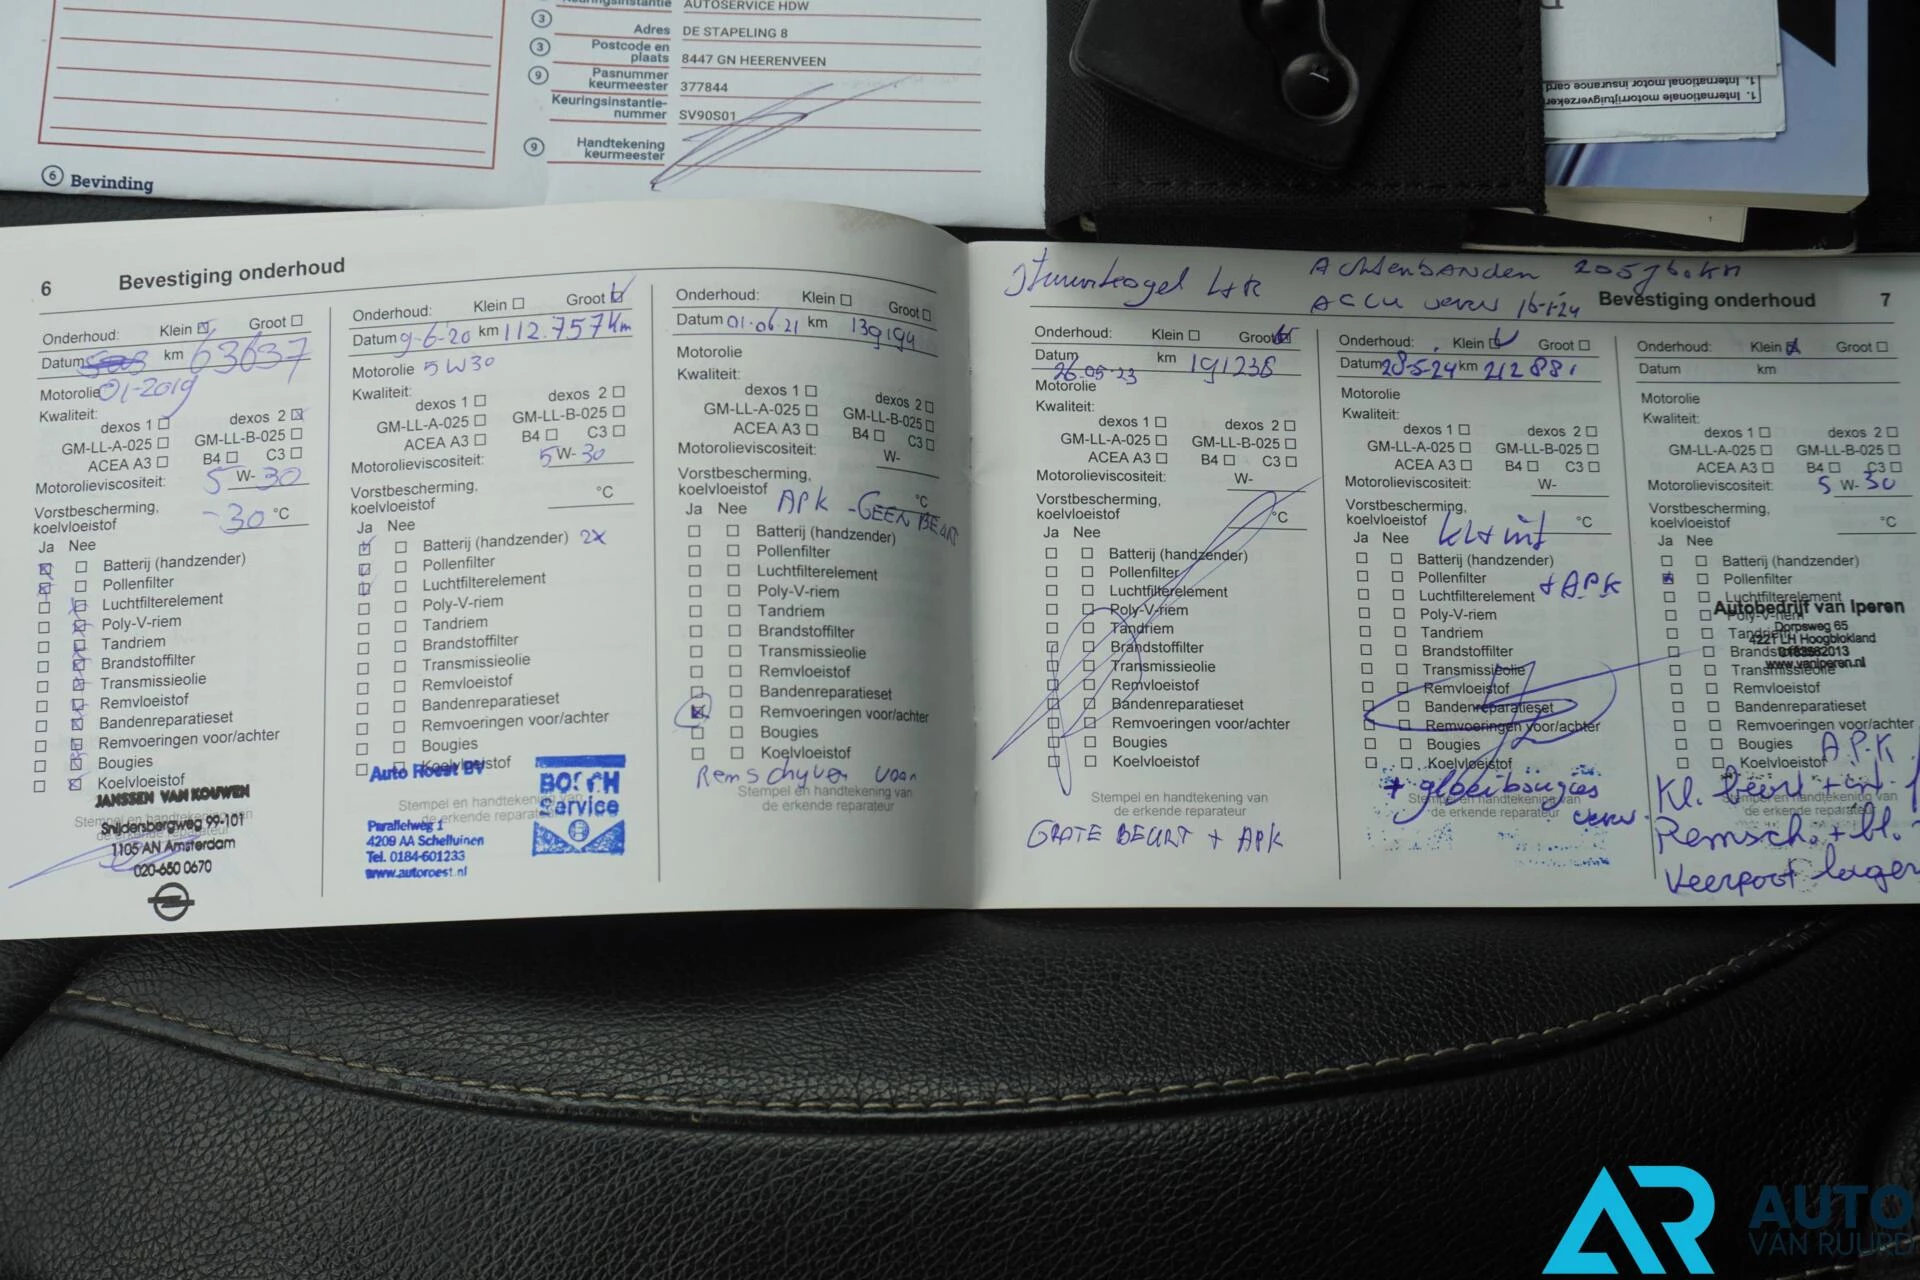 Keuringsinstantie AUTOSERVICE HDW
3 Adres DE STAPELING 8
3 Postcode en plaats 8447 GN HEERENVEEN
9 Pasnummer keurmeester 377844
Keuringsinstantie-nummer SV90S01
9 Handtekening keurmeester
6 Bevinding
1. International motor insurance card
1. Internationale motorrijtuigverzeker
6 Bevestiging onderhoud
Onderhoud: Klein Groot
Datum km 63637
Motorolie 01-2019
Kwaliteit:
dexos 1 dexos 2
GM-LL-A-025 GM-LL-B-025
ACEA A3 B4 C3
Motorolieviscositeit: 5 W-30
Vorstbescherming,
koelvloeistof -30 °C
Ja Nee
Batterij (handzender)
Pollenfilter
Luchtfilterelement
Poly-V-riem
Tandriem
Brandstoffilter
Transmissieolie
Remvloeistof
Bandenreparatieset
Remvoeringen voor/achter
Bougies
Koelvloeistof
JANSSEN VAN KOUWEN
Stempel en handtekening van
de erkende reparateur
Snijdersbergweg 99-101
1105 AN Amsterdam
020-650 0670
Onderhoud: Klein Groot
Datum 9-6-20 km 112.757 km
Motorolie 5W30
Kwaliteit:
dexos 1 dexos 2
GM-LL-A-025 GM-LL-B-025
ACEA A3 B4 C3
Motorolieviscositeit: 5W-30
Vorstbescherming,
koelvloeistof °C
Ja Nee
Batterij (handzender) 2x
Pollenfilter
Luchtfilterelement
Poly-V-riem
Tandriem
Brandstoffilter
Transmissieolie
Remvloeistof
Bandenreparatieset
Remvoeringen voor/achter
Bougies
Koelvloeistof
Auto Roest BV
BOSCH
Service
Stempel en handtekening van
de erkende reparateur
Parallelweg 1
4209 AA Schelluinen
Tel. 0184-601233
www.autoroest.nl
Onderhoud: Klein Groot
Datum 01.06.21 km 139194
Motorolie
Kwaliteit:
dexos 1 dexos 2
GM-LL-A-025 GM-LL-B-025
ACEA A3 B4 C3
Motorolieviscositeit: W-
Vorstbescherming,
koelvloeistof °C
APK - GEEN BEURT
Ja Nee
Batterij (handzender)
Pollenfilter
Luchtfilterelement
Poly-V-riem
Tandriem
Brandstoffilter
Transmissieolie
Remvloeistof
Bandenreparatieset
Remvoeringen voor/achter
Bougies
Koelvloeistof
Remschyven voor
Stempel en handtekening van
de erkende reparateur
Stuurkogel L+R
Achterbanden 205760 km
Accu verv 16-1-24
Bevestiging onderhoud 7
Onderhoud: Klein Groot
Datum 26.05.23 km 191238
Motorolie
Kwaliteit:
dexos 1 dexos 2
GM-LL-A-025 GM-LL-B-025
ACEA A3 B4 C3
Motorolieviscositeit: W-
Vorstbescherming,
koelvloeistof °C
Ja Nee
Batterij (handzender)
Pollenfilter
Luchtfilterelement
Poly-V-riem
Tandriem
Brandstoffilter
Transmissieolie
Remvloeistof
Bandenreparatieset
Remvoeringen voor/achter
Bougies
Koelvloeistof
Stempel en handtekening van
de erkende reparateur
GROTE BEURT + APK
Onderhoud: Klein Groot
Datum 28-5-24 km 212881
Motorolie
Kwaliteit:
dexos 1 dexos 2
GM-LL-A-025 GM-LL-B-025
ACEA A3 B4 C3
Motorolieviscositeit: W-
Vorstbescherming,
koelvloeistof °C
Ja Nee
Batterij (handzender)
Pollenfilter
Luchtfilterelement + APK
Poly-V-riem
Tandriem
Brandstoffilter
Transmissieolie
Remvloeistof
Bandenreparatieset
Remvoeringen voor/achter
Bougies
Koelvloeistof
+ gloeibougies
verv.
Stempel en handtekening van
de erkende reparateur
Onderhoud: Klein Groot
Datum km
Motorolie
Kwaliteit:
dexos 1 dexos 2
GM-LL-A-025 GM-LL-B-025
ACEA A3 B4 C3
Motorolieviscositeit: 5 W-30
Vorstbescherming,
koelvloeistof °C
Ja Nee
Batterij (handzender)
Pollenfilter
Luchtfilterelement
Poly-V-riem
Tandriem
Brandstoffilter
Transmissieolie
Autobedrijf van Iperen
Dorpsweg 65
4221 LH Hoogblokland
0183582013
www.vaniperen.nl
Remvloeistof
Bandenreparatieset
Remvoeringen voor/achter
Bougies
Koelvloeistof
A.P.K.
Kl. beurt + int.
Stempel en handtekening van
de erkende reparateur
Remsch. + bl.
Veerpoot lager
AR AUTO
VAN RUURD